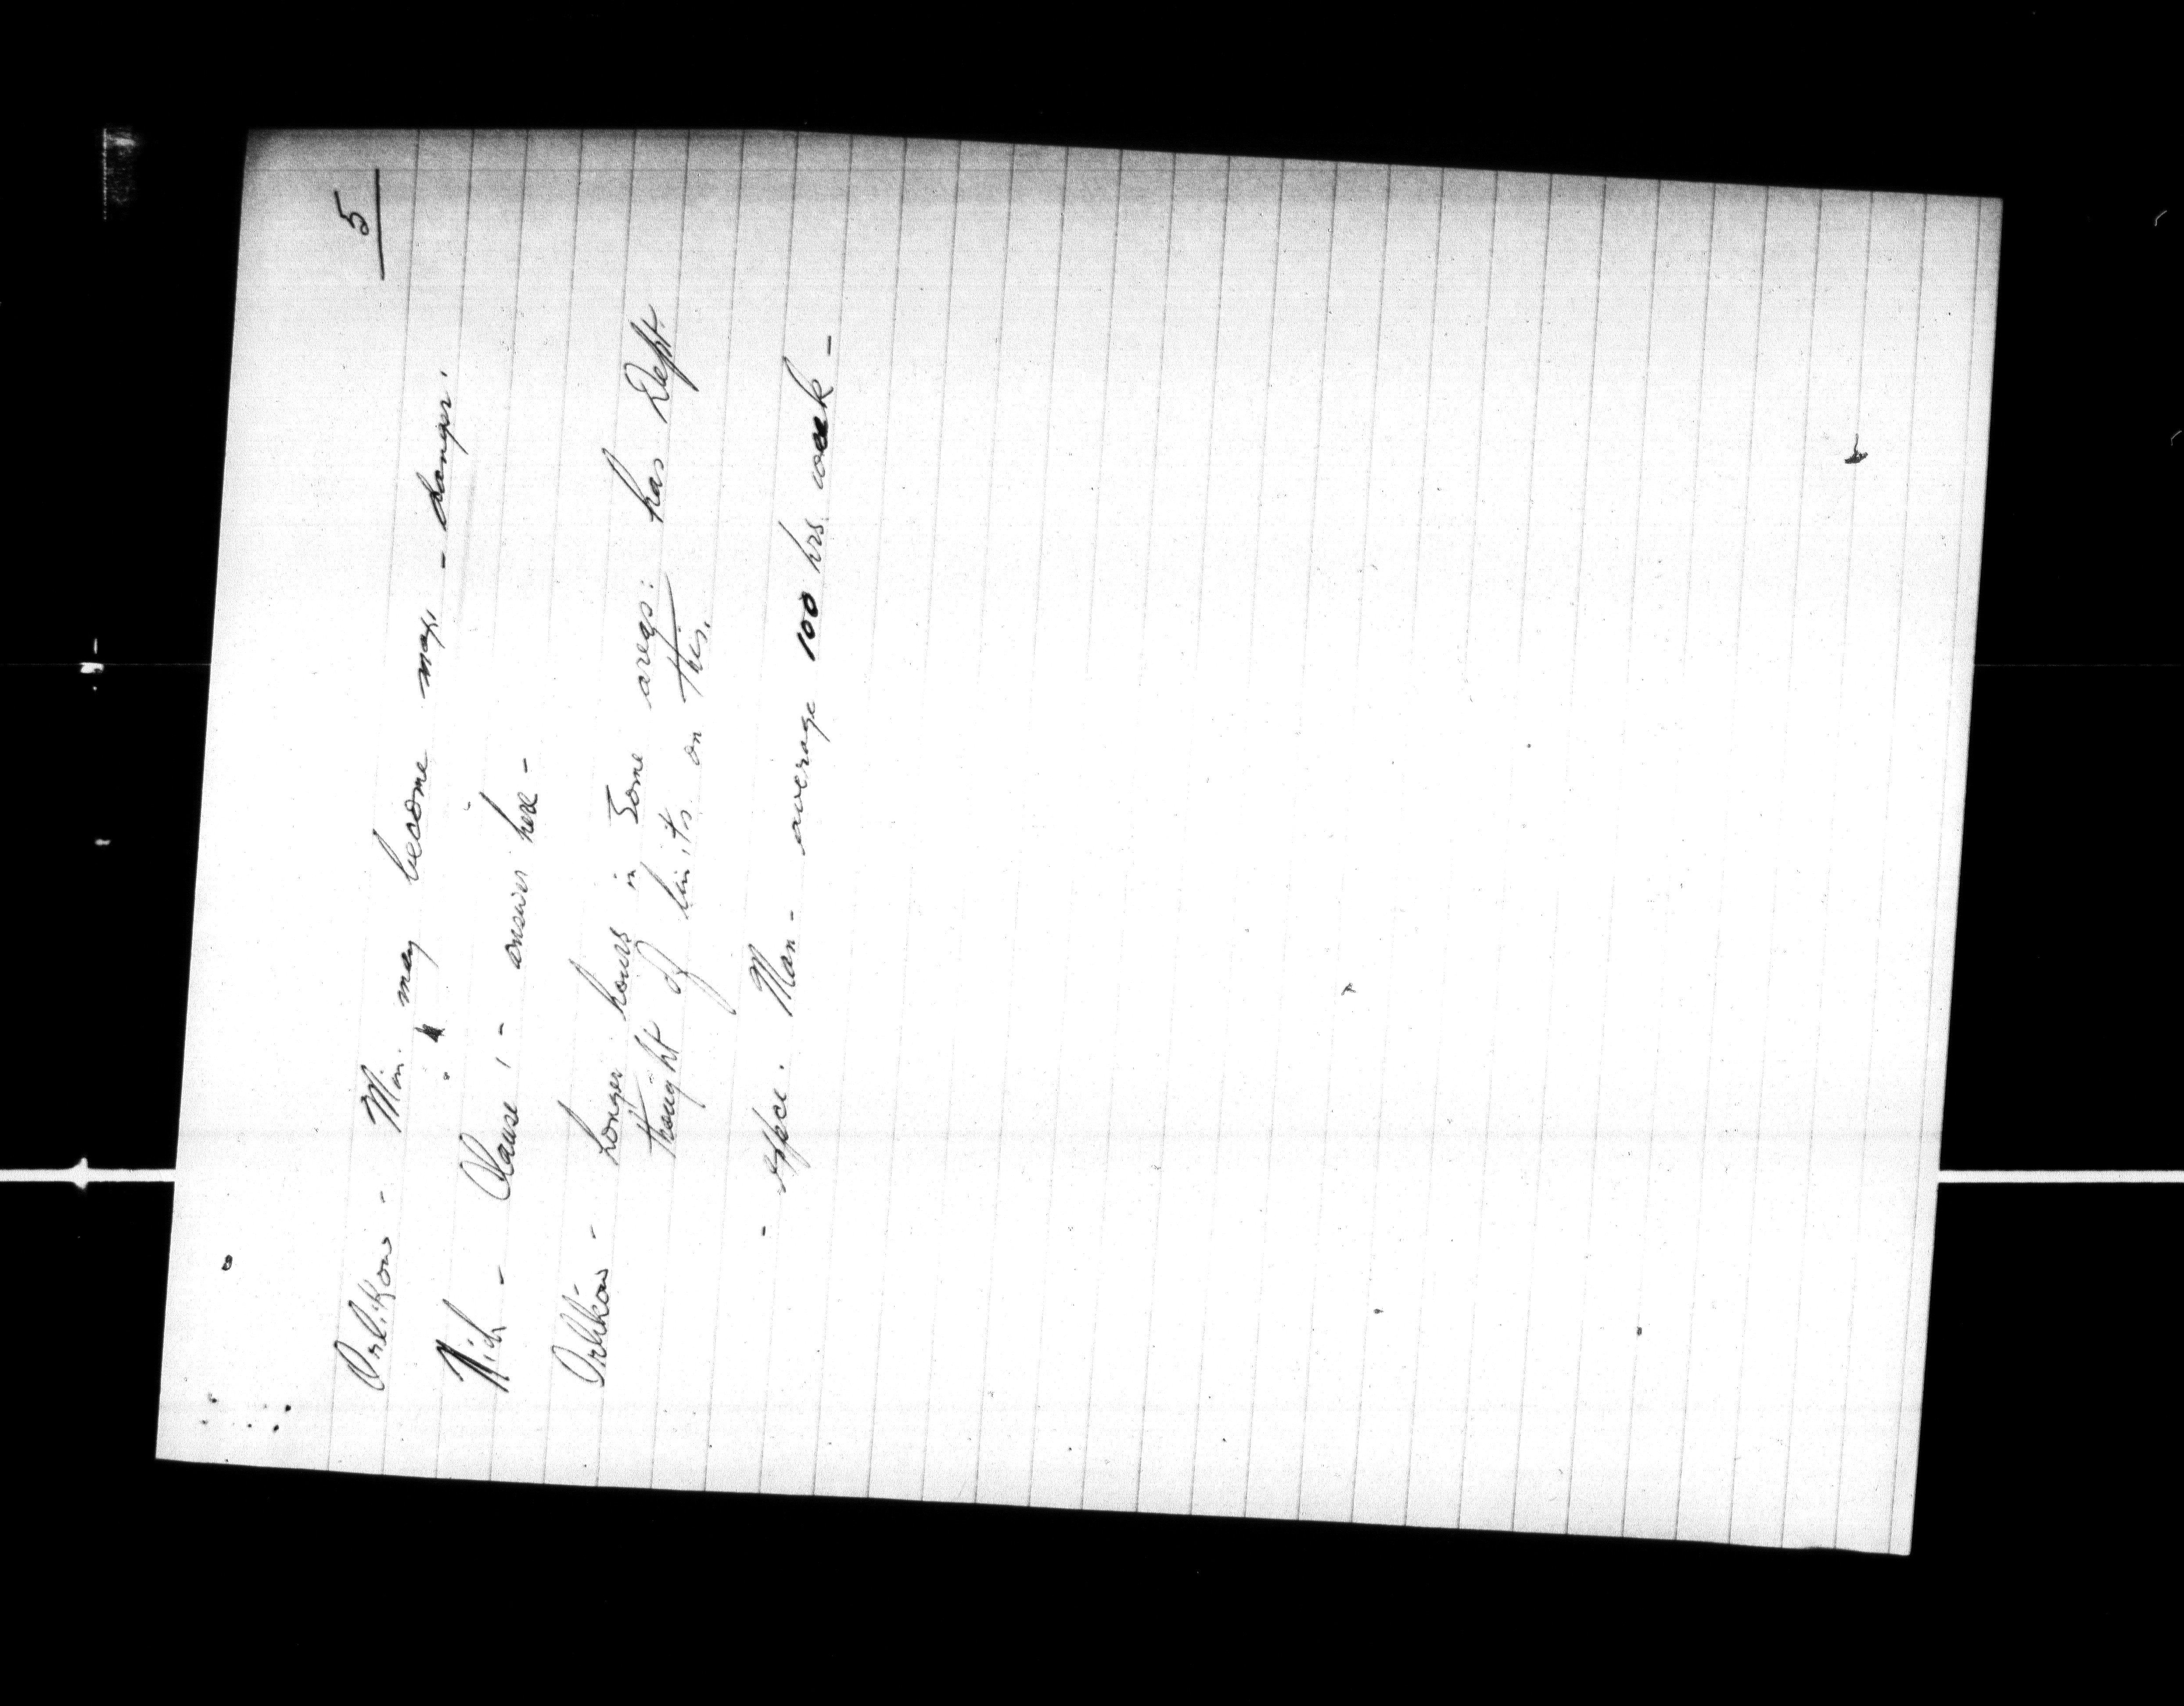 5
Orlikow - Min. may become max. - danger.
Nich - Clause 1 - answer here -
Orlikow - Longer hours in some areas: has Dept.
thought of limits on this.
- spec. Man - average 100 hrs. week -